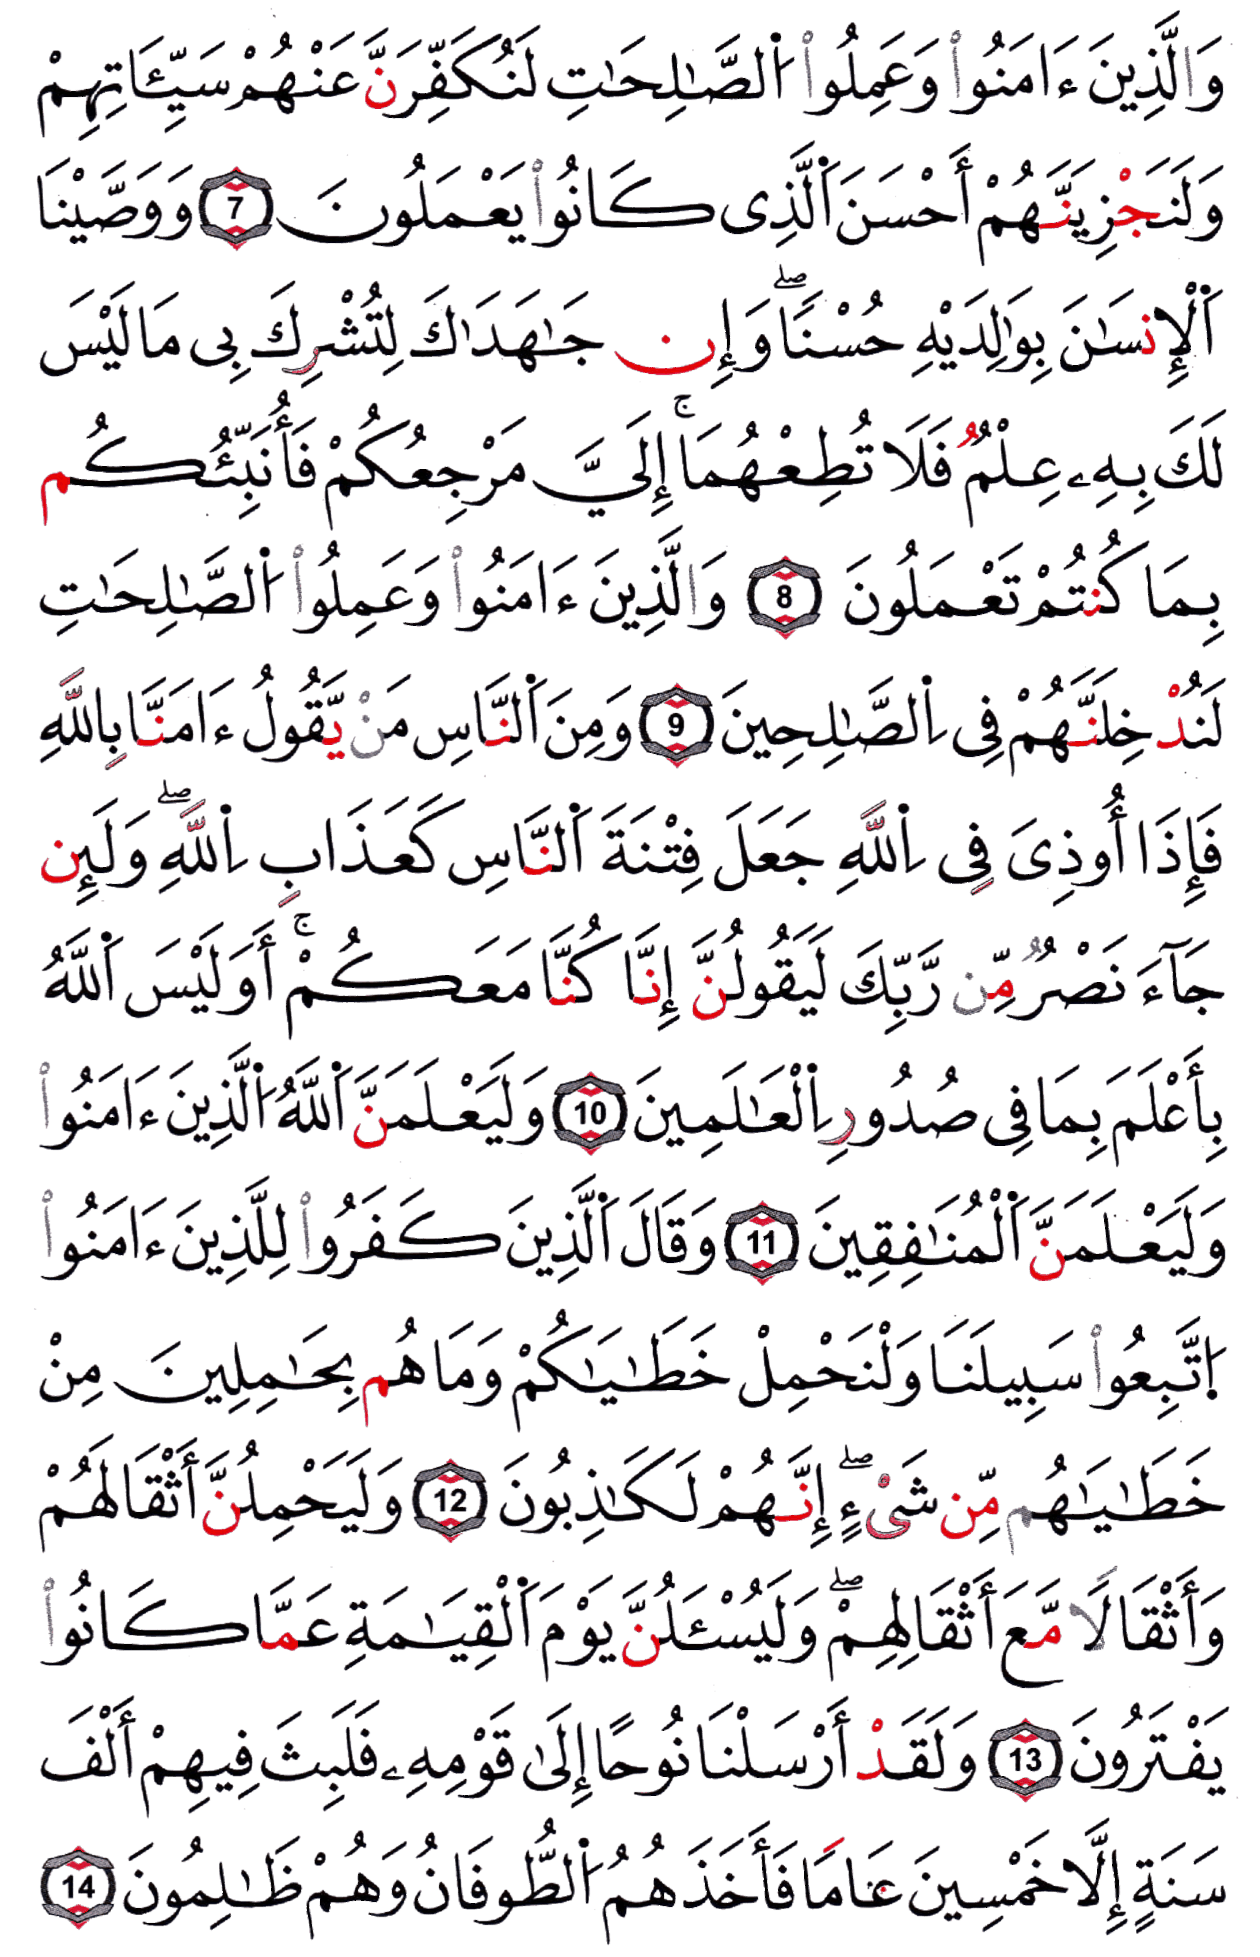 وَالَّذِينَ ءَامَنُواْ وَعَمِلُواْ اُ۬لصَّٰلِحَٰتِ لَنُكَفِّرَنَّ عَنْهُمْ سَيِّـَٔاتِهِمْ
وَلَنَجْزِيَنَّهُمْ أَحْسَنَ اَ۬لَّذِى كَانُواْ يَعْمَلُونَ 7 وَوَصَّيْنَا
اَ۬لْإِنسَٰنَ بِوَٰلِدَيْهِ حُسْنًاۖ وَإِن جَٰهَدَاكَ لِتُشْرِكَ بِى مَا لَيْسَ
لَكَ بِهِۦ عِلْمٌ فَلَا تُطِعْهُمَاۚ إِلَيَّ مَرْجِعُكُمْ فَأُنَبِّئُكُم
بِمَا كُنتُمْ تَعْمَلُونَ 8 وَالَّذِينَ ءَامَنُواْ وَعَمِلُواْ اُ۬لصَّٰلِحَٰتِ
لَنُدْخِلَنَّهُمْ فِى اِ۬لصَّٰلِحِينَ 9 وَمِنَ اَ۬لنَّاسِ مَنْ يَّقُولُ ءَامَنَّا بِاللَّهِ
فَإِذَا أُوذِىَ فِى اِ۬للَّهِ جَعَلَ فِتْنَةَ اَ۬لنَّاسِ كَعَذَابِ اِ۬للَّهِۖ وَلَئِن
جَآءَ نَصْرٌ مِّن رَّبِّكَ لَيَقُولُنَّ إِنَّا كُنَّا مَعَكُمْۚ أَوَلَيْسَ اَ۬للَّهُ
بِأَعْلَمَ بِمَا فِى صُدُورِ اِ۬لْعَٰلَمِينَ 10 وَلَيَعْلَمَنَّ اَ۬للَّهُ اُ۬لَّذِينَ ءَامَنُواْ
وَلَيَعْلَمَنَّ اَ۬لْمُنَٰفِقِينَ 11 وَقَالَ اَ۬لَّذِينَ كَفَرُواْ لِلَّذِينَ ءَامَنُواْ
اُ۪تَّبِعُواْ سَبِيلَنَا وَلْنَحْمِلْ خَطَٰيَٰكُمْ وَمَا هُم بِحَٰمِلِينَ مِنْ
خَطَٰيَٰهُم مِّن شَىْءٍۖ إِنَّهُمْ لَكَٰذِبُونَ 12 وَلَيَحْمِلُنَّ أَثْقَالَهُمْ
وَأَثْقَالًا مَّعَ أَثْقَالِهِمْۖ وَلَيُسْـَٔلُنَّ يَوْمَ اَ۬لْقِيَٰمَةِ عَمَّا كَانُواْ
يَفْتَرُونَ 13 وَلَقَدْ أَرْسَلْنَا نُوحًا إِلَىٰ قَوْمِهِۦ فَلَبِثَ فِيهِمْ أَلْفَ
سَنَةٍ إِلَّا خَمْسِينَ عَامًا فَأَخَذَهُمُ اُ۬لطُّوفَانُ وَهُمْ ظَٰلِمُونَ 14